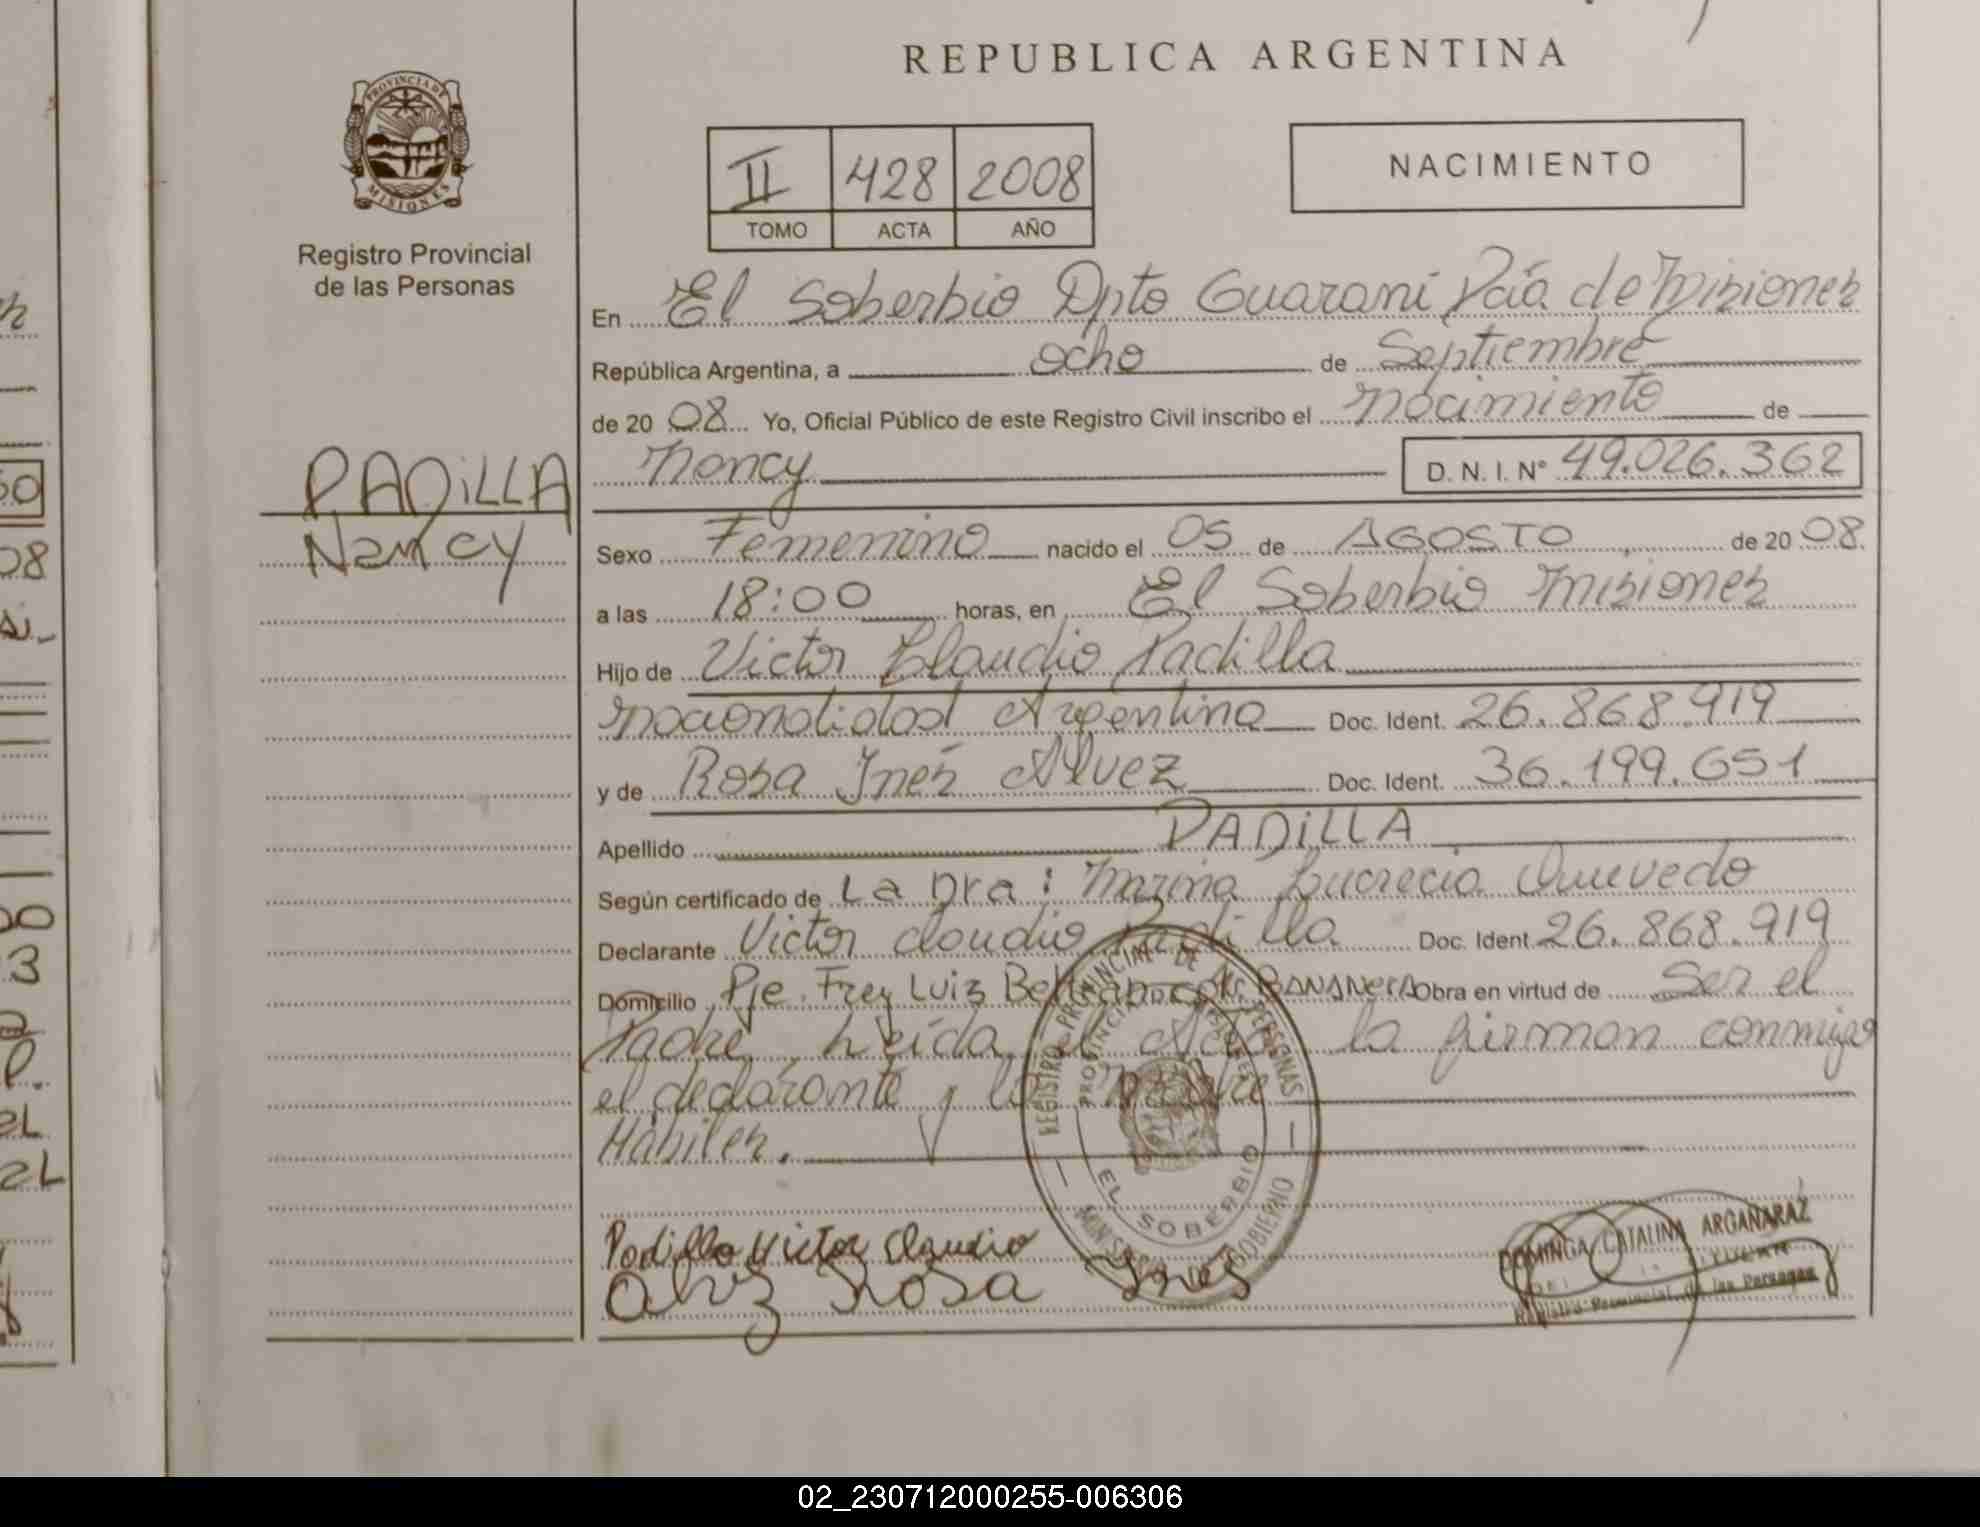 REPUBLICA ARGENTINA
PROVINCIA DE MISIONES
Registro Provincial
de las Personas
II 428 2008
TOMO ACTA AÑO
NACIMIENTO
En El Soberbio Dpto Guarani Pcia de Misiones
República Argentina, a ocho de Septiembre
de 2008 Yo, Oficial Público de este Registro Civil inscribo el nacimiento de
Nancy D. N. I. N° 49.026.362
PADiLLA
Nancy
Sexo Femenino nacido el 05 de AGOSTO de 2008
a las 18:00 horas, en El Soberbio Misiones
Hijo de Victor Claudio Padilla
nacionalidad Argentina Doc. Ident. 26.868.919
y de Rosa Inés Alvez Doc. Ident. 36.199.651
Apellido PADiLLA
Según certificado de La Dra: Marina Lucrecia Quevedo
Declarante Victor Claudio Padilla Doc. Ident 26.868.919
Domicilio Pje. Frey Luiz Beltran BANANERA Obra en virtud de Ser el
Padre, Leída el Acta la firman conmigo
el declarante y la Madre
Hábiles.
REGISTRO PROVINCIAL DE LAS PERSONAS
PROVINCIA DE MISIONES
EL SOBERBIO
GOBIERNO
Padilla Victor Claudio
Alvz Rosa Ines
DOMINGA CATALINA ARGAÑARAZ
Registro Provincial de las Personas
50
08
00
3
02_230712000255-006306